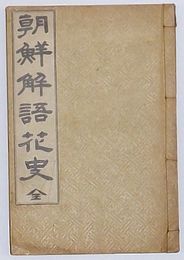 朝鮮解語花史
全